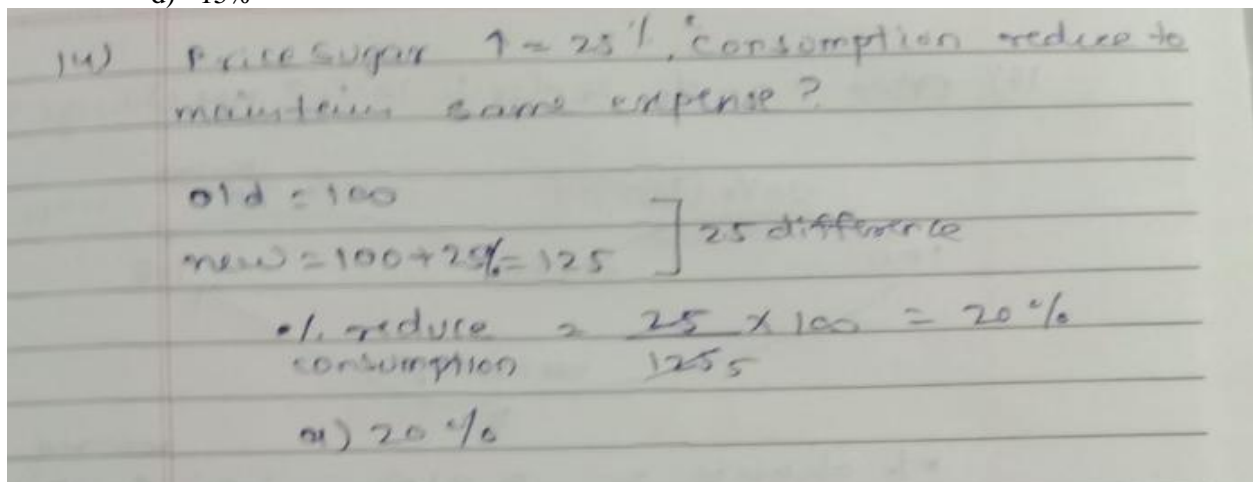 d) 15%
14) Price sugar ↑ = 25%, consumption reduce to
maintain same expense?
old = 100
new = 100+25% = 125 ] 25 difference
% reduce = 25 x 100 = 20%
consumption 125 5
a) 20%